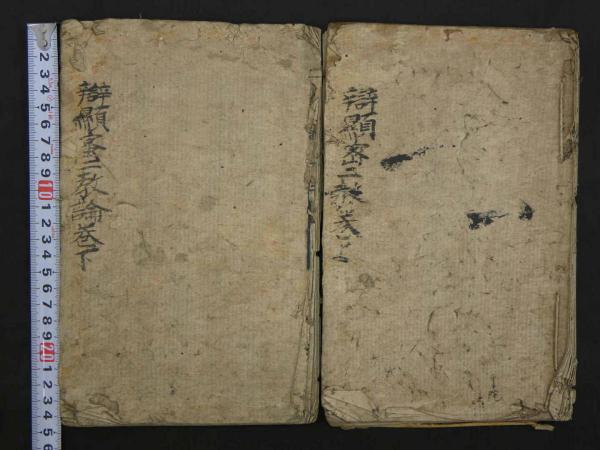 辯顯密二教卷上
辯顯密二教論卷下
1 2 3 4 5 6 7 8 9 10 1 2 3 4 5 6 7 8 9 20 1 2 3 4 5 6